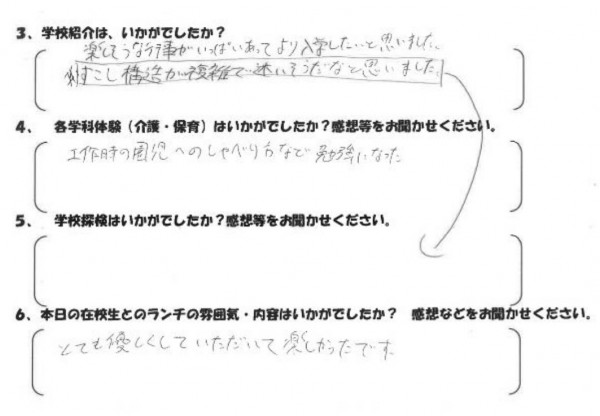 3、学校紹介は、いかがでしたか?
楽しそうな行事がいっぱいあってより入学したいと思いました。
すこし構造が複雑で迷いそうだなと思いました。
4、 各学科体験(介護・保育)はいかがでしたか?感想等をお聞かせください。
工作時の園児へのしゃべり方など勉強になった
5、 学校探検はいかがでしたか?感想等をお聞かせください。
6、本日の在校生とのランチの雰囲気・内容はいかがでしたか? 感想などをお聞かせください。
とても優しくしていただいて楽しかったです